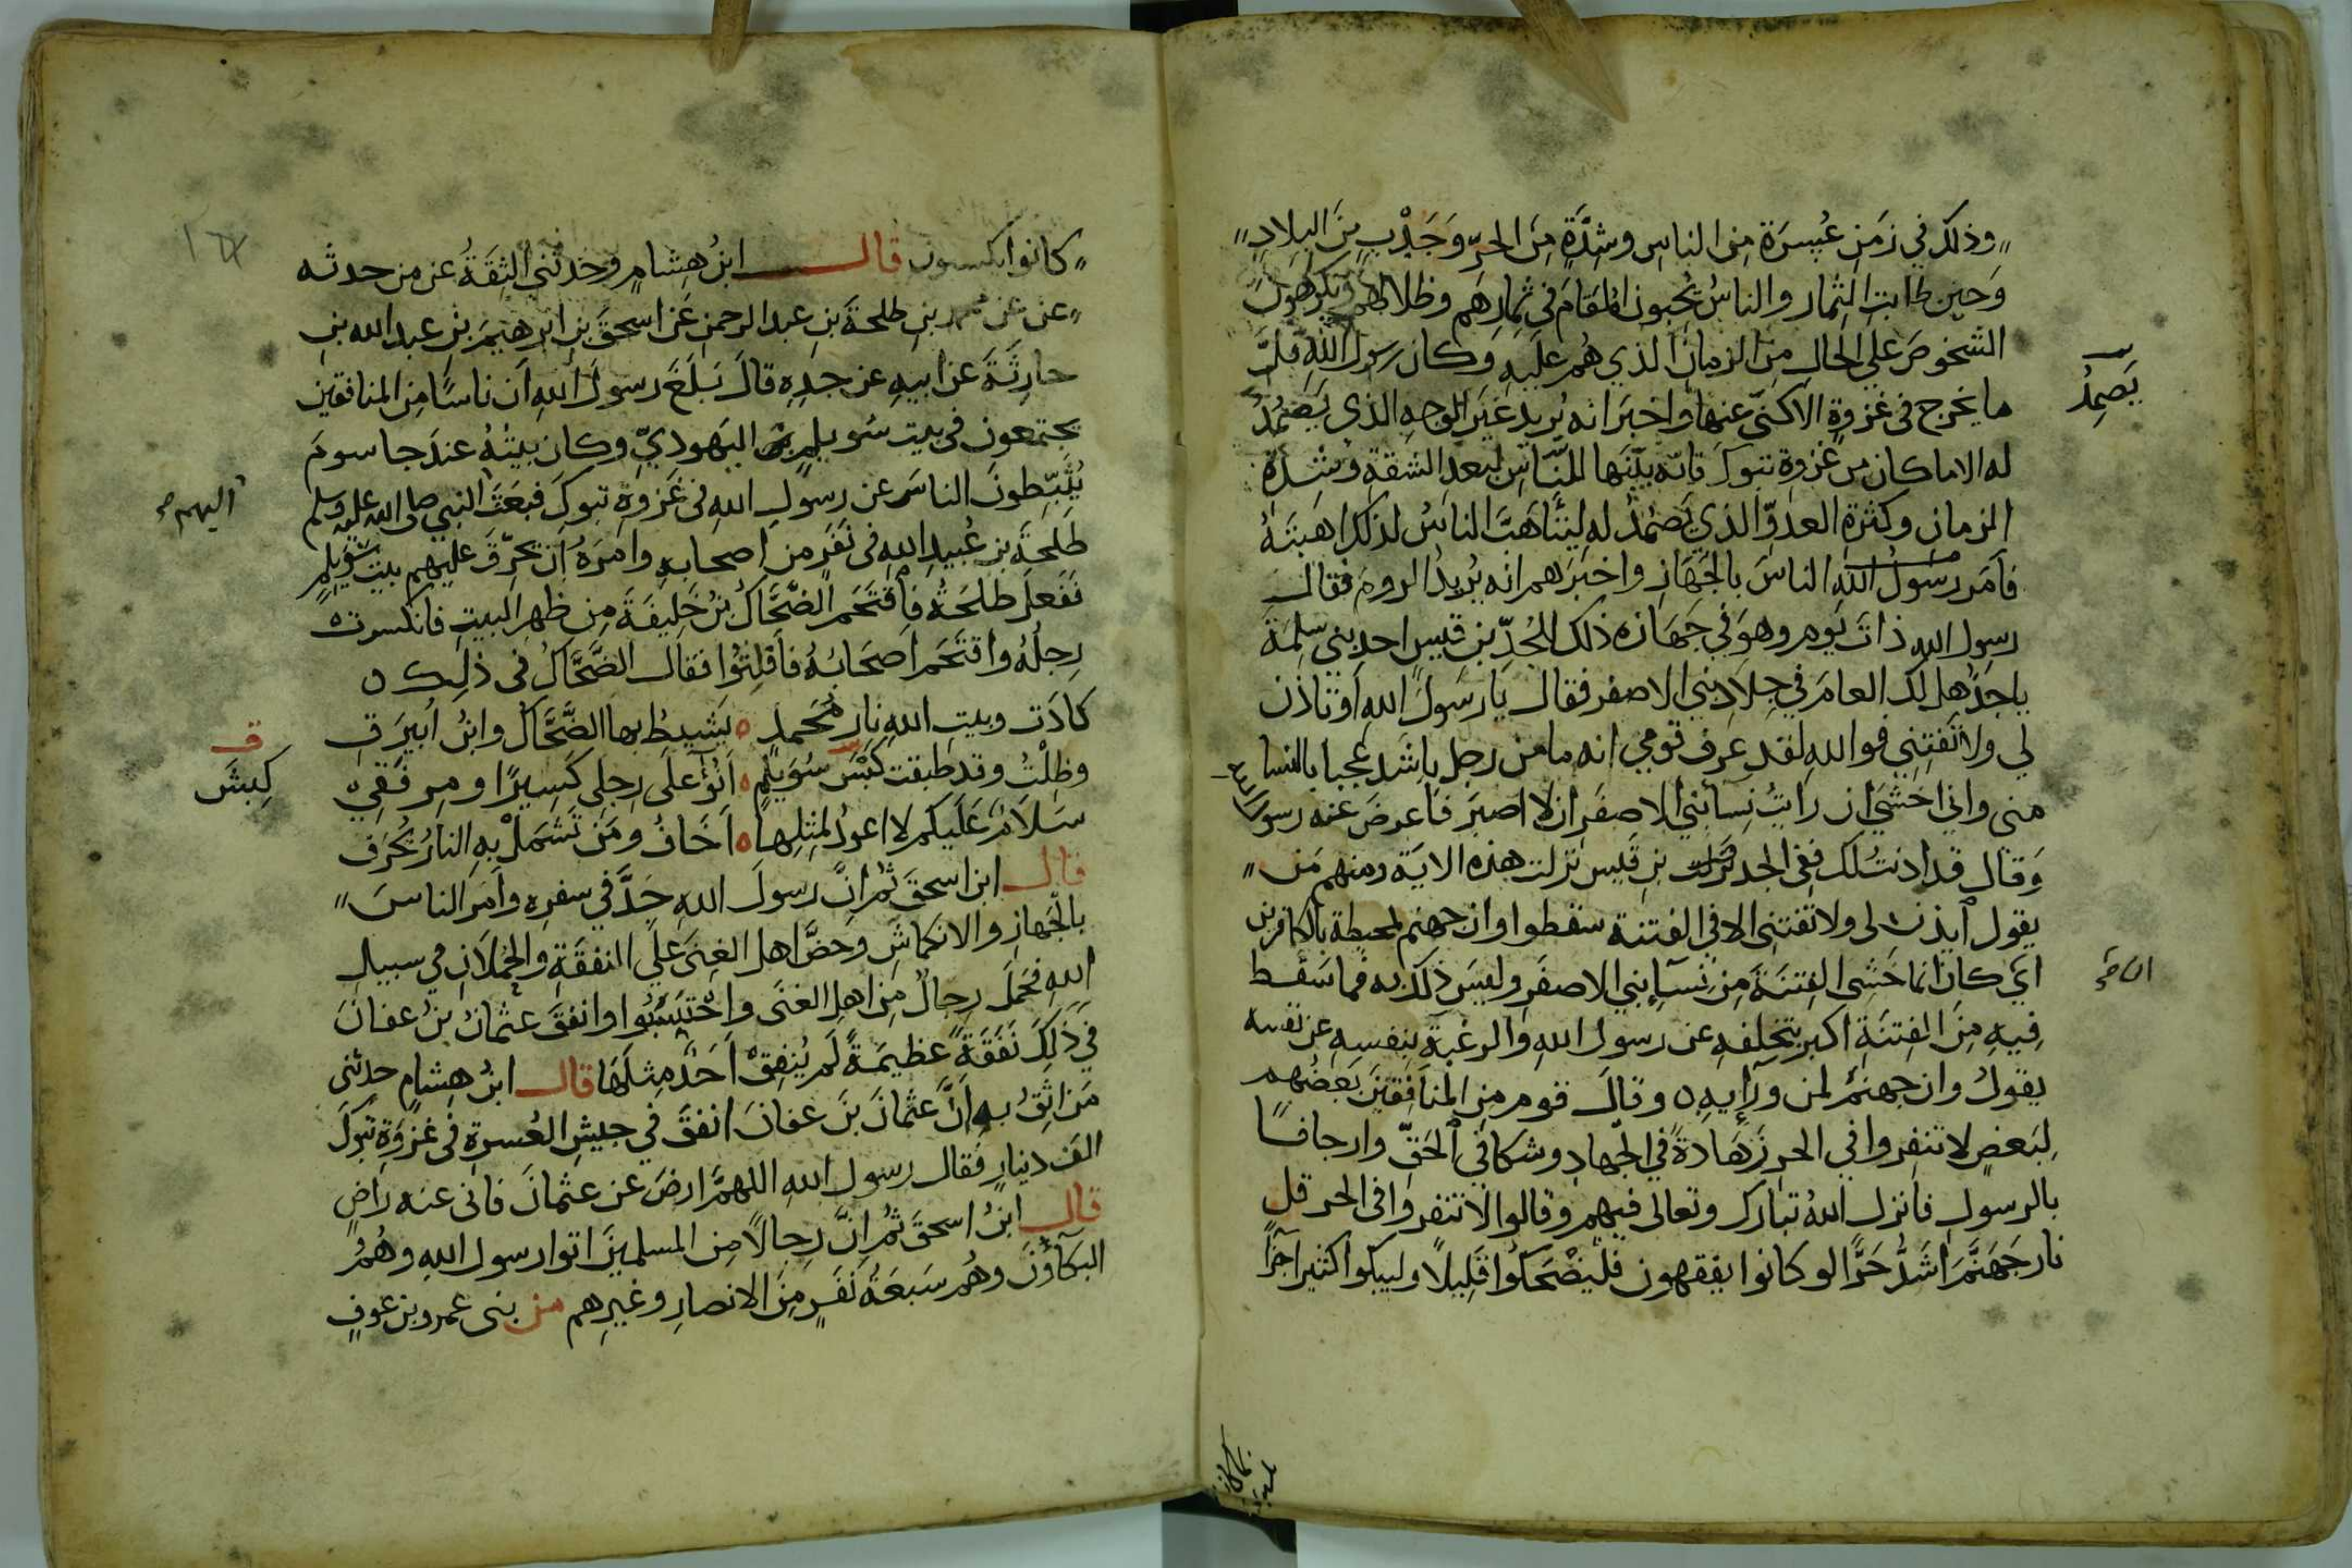 وذلك في زَمَنِ عُسرَة مِن الناسِ وشِدَّةٍ مِنَ الحرّ وَجَدْبٍ مِنَ البلادِ
وَحين طابت الثمار والناسُ يُحبون المُقامَ في ثمارهم وظلالهم ويكرهونَ
الشخوصَ علي الحالِ مِنَ الزمان الذي هُم عليهِ وَكان رسول الله قلّ
ما يخرج في غزوةٍ الا كنّى عنها واخبرَ انه يُريد غيرَ الوجهِ الذي يَصْمُدُ
له الا ما كان من غزوةِ تبوكَ فانّه بيّنَها للنّاسِ لبعدِ الشقةِ وَشدةِ
الزمانِ وكثرة العدوّ الذي يَصْمُدُ له ليتَأهَّبَ الناسُ لذلك اهبتَهُ
فأمَر رسولُ الله الناسَ بالجَهَازِ واخبَرَهم انه يُريدُ الرومَ فقال
رسول الله ذاتَ يَوم وهوَ في جَهَازه ذلك للجُدِّ بن قيسٍ احدِ بني سَلِمَةَ
ياجدُ هل لك العامَ في جِلادِ بني الاصفر فقال يا رسولَ اللهِ أوَ تأذن
لي ولا تَفتِنِي فوالله لقد عرف قومي انه ما من رجل باشد عُجبا بالنسا
مني واني اخشَي ان رايتُ نِسآ بني الاصفَرِ ان لا اصبِرَ فاَعرضَ عنه رسول الله
وَقال قد اذنتُ لك ففي الجد بنِ قَيس نزلت هذه الاية ومنهم مَن
يقول آيذن لي ولا تفتني الا في الفتنة سقطوا وان جهنم لمحيطة بالكافرين
اي كان انما خَشِي الفِتنَةَ مِن نِسآءِ بني الاصفَرِ وليسَ ذلك به فما سَقط
فِيهِ مِنَ الفِتنَةِ اكبر بتخلفهِ عن رسول اللهِ والرغبة بنِفسِهِ عن نفسه
يقولُ وان جهنم لمن ورآيِهِ ه وقالَ قوم من المنافِقِينَ بَعضُهم
لِبَعضٍ لا تنفِروا في الحر زَهَادةً في الجهادِ وشكا في الحَقّ وارجافًا
بالرسولِ فانزل اللهُ تبارك وتعالى فيهم وقالوا لا تنفروا في الحر قل
نار جَهَنَّمَ اشَدُّ حَرًّا لو كانوا يفقهون فليَضْحَكوا قَلِيلًا وليبكوا كثيرا جَزآً
يَصمِدُ
كانوا يكسبون قال ابنُ هِشامٍ وَحَدثني الثِقَةُ عن من حدثه
عن محمد بنِ طلحةَ بنِ عبد الرحمنِ عَن اسحقَ بنِ ابرهيمَ بنِ عبد الله بنِ
حارِثَةَ عن ابيهِ عن جدِهِ قالَ بَلَغَ رسولَ اللهِ اَن ناسًا مِنَ المنافقين
يجتمعون في بيت سُويلمٍ اليَهوديّ وكان بيتُهُ عندَ جاسومَ
يُثَبِّطونَ الناسَ عن رسولِ اللهِ في غَزوةِ تبوكَ فبعَثَ النبي صلى الله عليه وسلم
اليهم
طَلحَةَ بن عُبيدِ اللهِ في نَفَرٍ من اصحابهِ وامرَهُ ان يُحرِّقَ عليهم بيتَ سُوَيلمٍ
ففعلَ طلحَةُ فاقتَحَم الضَّحَّاكُ بنُ خَلِيفَةَ مِن ظهرِ البيتِ فانكسرت
رِجلُهُ واقتَحَم اصحَابُهُ فأفلتُوا فقال الضَّحَّاكُ في ذلِك ه
كادَت وبيتِ اللهِ نار محمدٍ ه يَشيطُ بها الضَّحَّاكُ وابنُ اُبيرَقِ
وظلْتُ وقد طبقت كَبْسَ سُوَيلِمٍ ه اَنُؤ علَى رِجلي كَسِيرًا ومِرفَقي
ق
كِبسَ
سَلَامٌ عَلَيكم لا اعودُ لمِثلِها ه اَخَافُ ومَن تَشمَلْ بِهِ النارُ يُحرَقِ
قال ابن اسحقَ ثُم اِنَّ رسولَ اللهِ جَدَّ في سفرهِ واَمَر الناسَ
بالجَهازِ والانكماشِ وَحَضَّ اهل الغِنَى علَي النفقَةِ والحُملَانِ في سبيلِ
اللهِ فحَملَ رِجالٌ مِن اهلِ الغنَى واحْتَسَبُوا وانفقَ عثمانُ بنُ عفانَ
في ذَلِكَ نَفَقَةً عظيمَةً لَم يُنفِقْ اَحَدٌ مِثلَهَا قال ابنُ هِشامٍ حدثني
مَن اثِقُ بِهِ اَنَّ عثمانَ بنَ عفانَ انفقَ في جيشِ العُسرةِ في غزوَةِ تبوكَ
الف دينارٍ فقال رسول اللهِ اللهمَّ ارضَ عن عثمانَ فاني عنه راضٍ
قال ابنُ اسحقَ ثُم اِنَّ رِجالًا مِن المسلمينَ اتوا رسول اللهِ وهُمُ
البكآؤنَ وهُم سَبعَةُ نَفَرٍ مِنَ الانصارِ وغيرِهم من بني عمرو بن عوفٍ